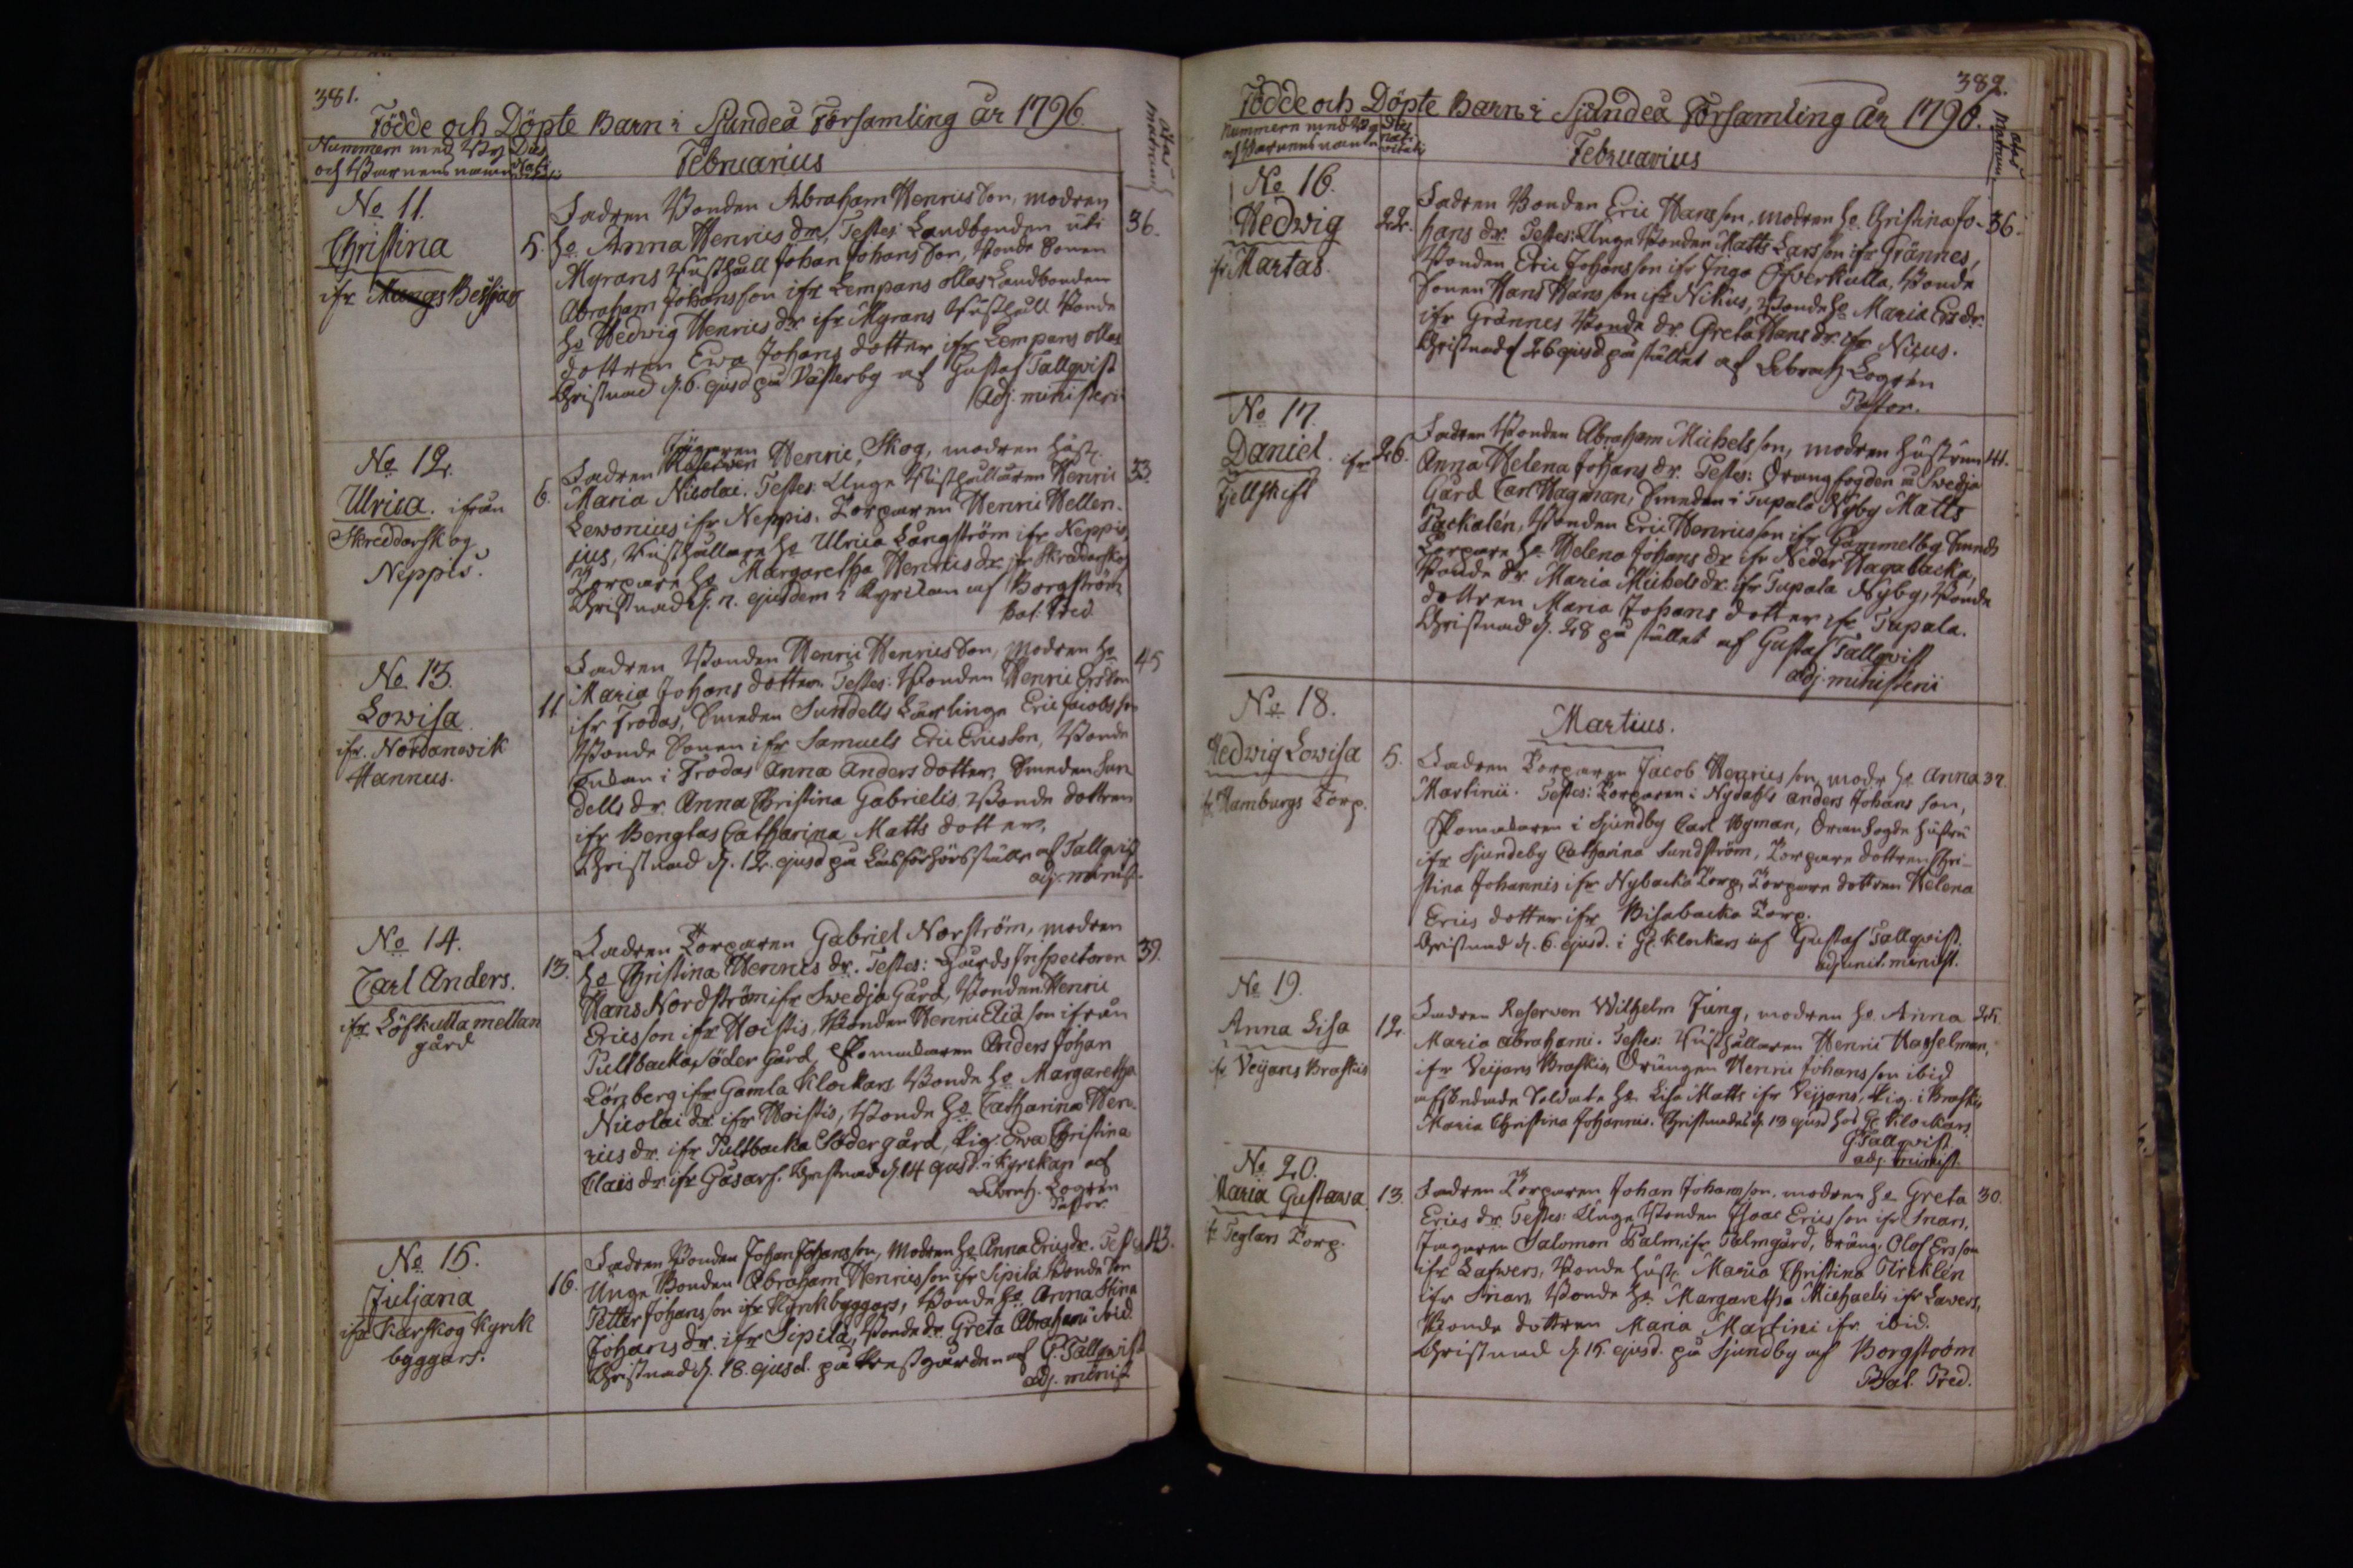 381.
Födde och Döpte Barn i Sjundeå Församling År 1796.
Nummern med By och Barnens namn
Dies Nativitatis
Februarius
ætas matrum
No 11.
Christina
ifr Manges Bessjars
5.
Fadren Bonden Abraham Henricsson, modren
ho Anna Henrics dr, Testes: Landbonden uti
Myrans Rusthåll Johan Johans Son, Bonde Sonen
Abraham Johansson ifr Lempans ollas Landbondens
ho Hedvig Henrics dr ifr Myrans Rusthåll Bonde
dottren Ewa Johans dotter ifr Lempans ollas
Christnad d. 6. ejusd på Västerby af Gustaf Tallqvist
Adj. ministerii
36.
No 12.
Ulrica. ifrån
Skreddarskog
Neppis.
6.
Jägaren
Fadren Reserven Henric Skog, modren hust.
Maria Nicolai. Testes: Unge Rusthållaren Henric
Lewonius ifr Neppis, Torparen Henric Hellen-
jus, Rusthållare ho Ulrica Långström ifr Neppis,
Torpare ho Margaretha Henrics dr ifr Skräddarskog
Christnad d. 7. ejusdem i Kyrckan af Borgström
Bat. Pred.
33.
No 13.
Lowisa
ifr. Nordanwik
Hannus.
11
Fadren Bonden Henric Henricsson, Modren ho
Maria Johans dotter. Testes: Bonden Henric Ersson
ifr Frodas, Smeden Sundells Lärlinge Eric Jacobsson
Bonde Sonen ifr Samuels Eric Ericsson, Bonde
Enkan i Frodas Anna Anders dotter, Smeden Sun
dells dr. Anna Christina Gabrielis. Bonde dottren
ifr Benglas Catharina Matts dotter,
Christnad d. 12. ejusd på Läsförhörsställe af Tallqvist
adj. minist.
45
No 14.
Carl Anders.
ifr Löfkulla mellan
gård
13.
Fadren Torparen Gabriel Norström, modren
ho Christina Henrics dr. Testes: Gårds Inspectoren
Hans Nordström ifr Swedja Gård, Bonden Henric
Ericsson ifr Hoistis, Bonden Henric Elias son ifrån
Pultbacka söder Gård, Skomakaren Anders Johan
Lönberg ifr Gamla Klockars Bonde ho Margaretha
Nicolai dr ifr Hoistis, Bonde ho Catharina Hen-
rics dr. ifr Pultbacka Södergård, Pig. Ewa Christina
Clais dr ifr Gåsars. Christnad d. 14 ejusd. i Kyrckan af
Librentz. Logrén
Pastor.
39.
No 15.
Juljana
ifr Karskog Kyrk
byggars.
16.
Fadren Bonden Johan Johansson, Modren ho Anna Erics dr. Testes
Unge Bonden Abraham Henricsson ifr Sipilä Bonde Son
Petter Johansson ifr Kyrckbyggars, Bonde ho Anna Stina
Johans dr. ifr Sipilä, Bonde dr Greta Abrahami ibid.
Christnad d. 18. ejusd. på Prestgården af G. Tallqvist
adj. minist
43.
382.
Födde och Döpte Barn i Sjundeå Församling År 1796.
Nummern med By och Barnens namn
Dies nativitatis
Februarius
ætas Matrum.
No 16.
Hedwig
ifr Martas.
22.
Fadren Bonden Eric Hansson, modren ho Christina Jo-
hans dr. Testes: Unge Bonden Matts Larsson ifr Grännes,
Bonden Eric Johansson ifr Ingo Öfwerkulla, Bonde
Sonen Hans Hansson ifr Nikus, Bonde ho Maria Ers dr.
ifr Grännes Bonde dr. Greta Hans dr. ifr Nicus.
Christnad d 26 ejusd på stället af Librentz Logrén
Pastor.
36.
No 17.
Daniel. ifr
Fjellskift
26.
Fadren Bonden Abraham Michelsson, modren hustrun
Anna Helena Johans dr. Testes: Drängfogden å Swedja
Gård Carl Hagman, Smeden i Tupala Nyby Matts
Packalén, Bonden Eric Henricsson ifr Gammelby Smeds
Torpare ho Helena Johans dr ifr Neder Hagabacka,
Bonde dr. Maria Michels dr. ifr Tupala Nyby, Bonde
dottren Maria Johans dotter ifr Tupala.
Christnad d. 28 på stället af Gustaf Tallqvist
adj. ministerii
41.
Martius.
No 18.
Hedwig Lowisa
fr Hamburgs Torp.
5.
Fadren Torparen Jacob Henricsson, modr. ho Anna
Martinii. Testes: Torparen i Nydahls Anders Johans son,
Skomakaren i Sjundby Carl Nyman, Drängfogde hustru
ifr Sjundeby Catharina Sundström, Torpare dottren Chri-
stina Johannis ifr Nybacka Torp, Torpare dottren Helena
Erics dotter ifr Bisabacka Torp.
Christnad d. 6. ejusd. i Gl Klockars af Gustaf Tallqvist.
adjunct. minist.
37.
No 19.
Anna Lisa
ifr Veijans Braskis
12.
Fadren Reserven Wilhelm Jung, modren ho Anna
Maria Abrahami. Testes: Rusthållaren Henric Hasselman,
ifr Veijans Braskis, Drängen Henric Johansson ibid
afskedade Soldate ho Lisa Matts ifr Veijans, Pig. i Braskis
Maria Christina Johannis. Christnades d 13 ejusd hos Gl Klockars
G Tallqvist
adj. minist.
25.
No 20.
Maria Gustawa
fr Teglars Torp.
13.
Fadren Torparen Johan Johansson, modren ho Greta
Erics dr. Testes: Unge Bonden Isaac Ericsson ifr Snars,
Jägaren Salomon Palm, ifr Palmgård, dräng. Olof Ersson
ifr Lafwers, Bonde hust. Maria Christina Fircklén
ifr Snars, Bonde ho Margaretha Michaelis ifr Lavers,
Bonde dottren Maria Martini ifr. ibid.
Christnad d. 15. ejusd. på Sjundby af Borgström
Bat. Pred.
30.